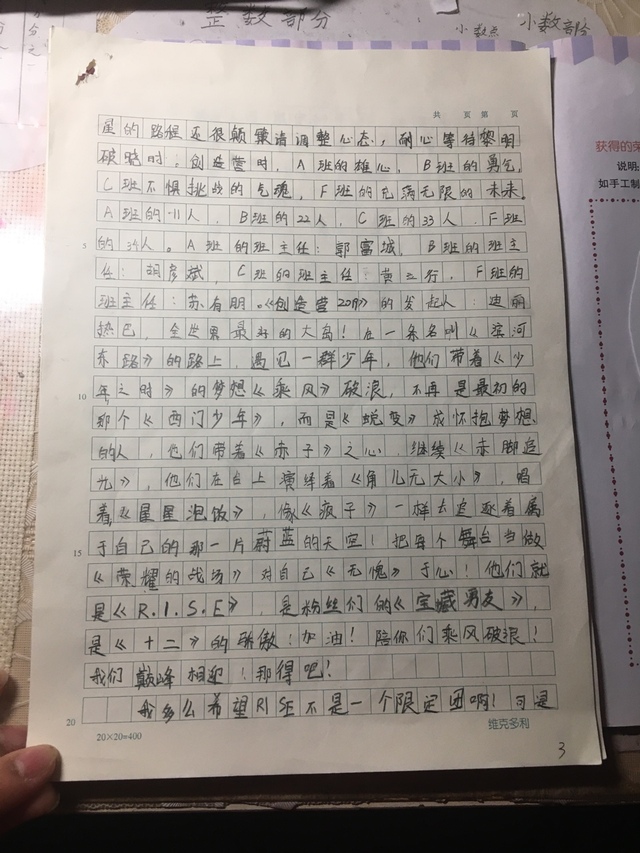 整数部分
小数点 小数部分
共 页 第 页
获得的荣
说明
如手工制
星的路程还很颠簸请调整心态，耐心等待黎明
破晓时；创造营时，A班的雄心，B班的勇气，
C班不惧挑战的气魂，F班的充满无限的未来。
A班的11人，B班的22人，C班的33人，F班
5 的34人。A班的班主任：郭富城，B班的班主
任：胡彦斌，C班的班主任：黄立行，F班的
班主任：苏有朋。《创造营2019》的发起人：迪丽
热巴，全世界最好的大岛！在一条名叫《滨河
东路》的路上，遇见一群少年，他们带着《少
10 年之时》的梦想《乘风》破浪，不再是最初的
那个《西门少年》，而是《蜕变》成怀抱梦想
的人，他们带着《赤子》之心，继续《赤脚追
光》，他们在台上演绎着《角儿无大小》，唱
着《星星泡饭》，像《疯子》一样去追逐着属
15 于自己的那一片蔚蓝的天空！把每个舞台当做
《荣耀的战场》对自己《无愧》于心！他们就
是《R.I.S.E》，是粉丝们的《宝藏男友》，
是《十二》的骄傲！加油！陪你们乘风破浪！
我们巅峰相迎！那得吧！
20 我多么希望RISE不是一个限定团啊！可是
20×20=400 维克多利
3